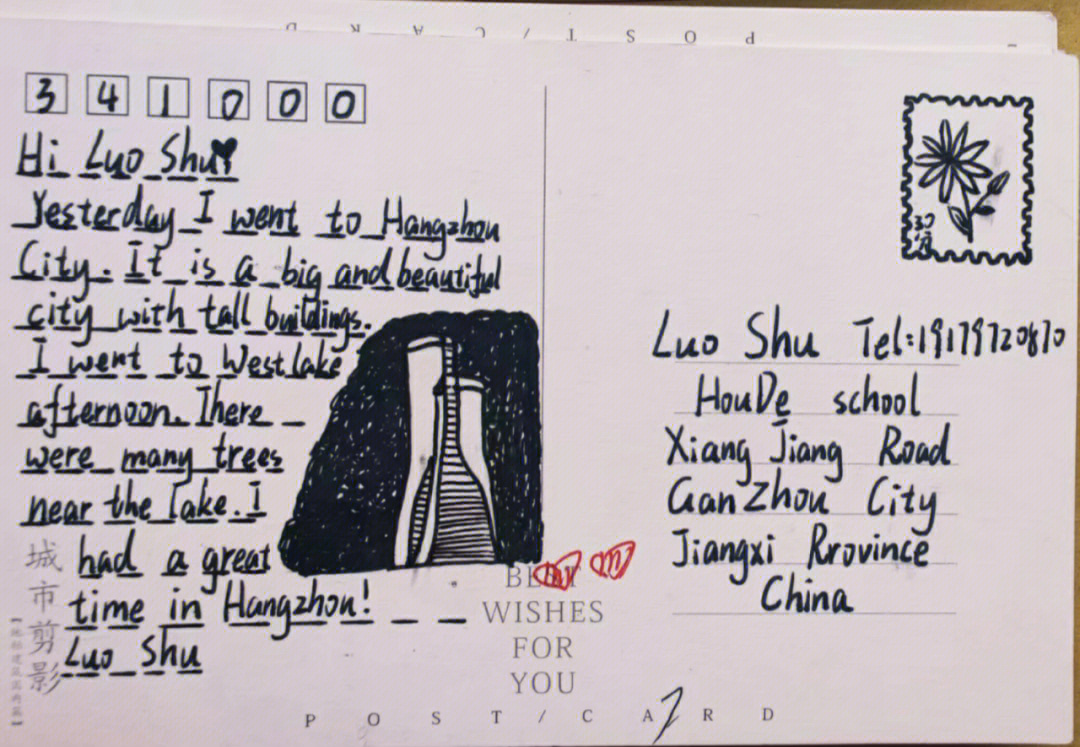 P O S T / C A R D
3 4 1 0 0 0
Hi Luo Shu
Yesterday I went to Hangzhou
City. It is a big and beautiful
city with tall buildings.
I went to West lake
afternoon. There
were many trees
near the lake. I
had a great
time in Hangzhou!
Luo Shu
城市剪影
30分
Luo Shu Tel:19179720870
HouDe school
Xiang Jiang Road
GanZhou City
Jiangxi Rrovince
China
BEST
WISHES
FOR
YOU
P O S T / C A R D